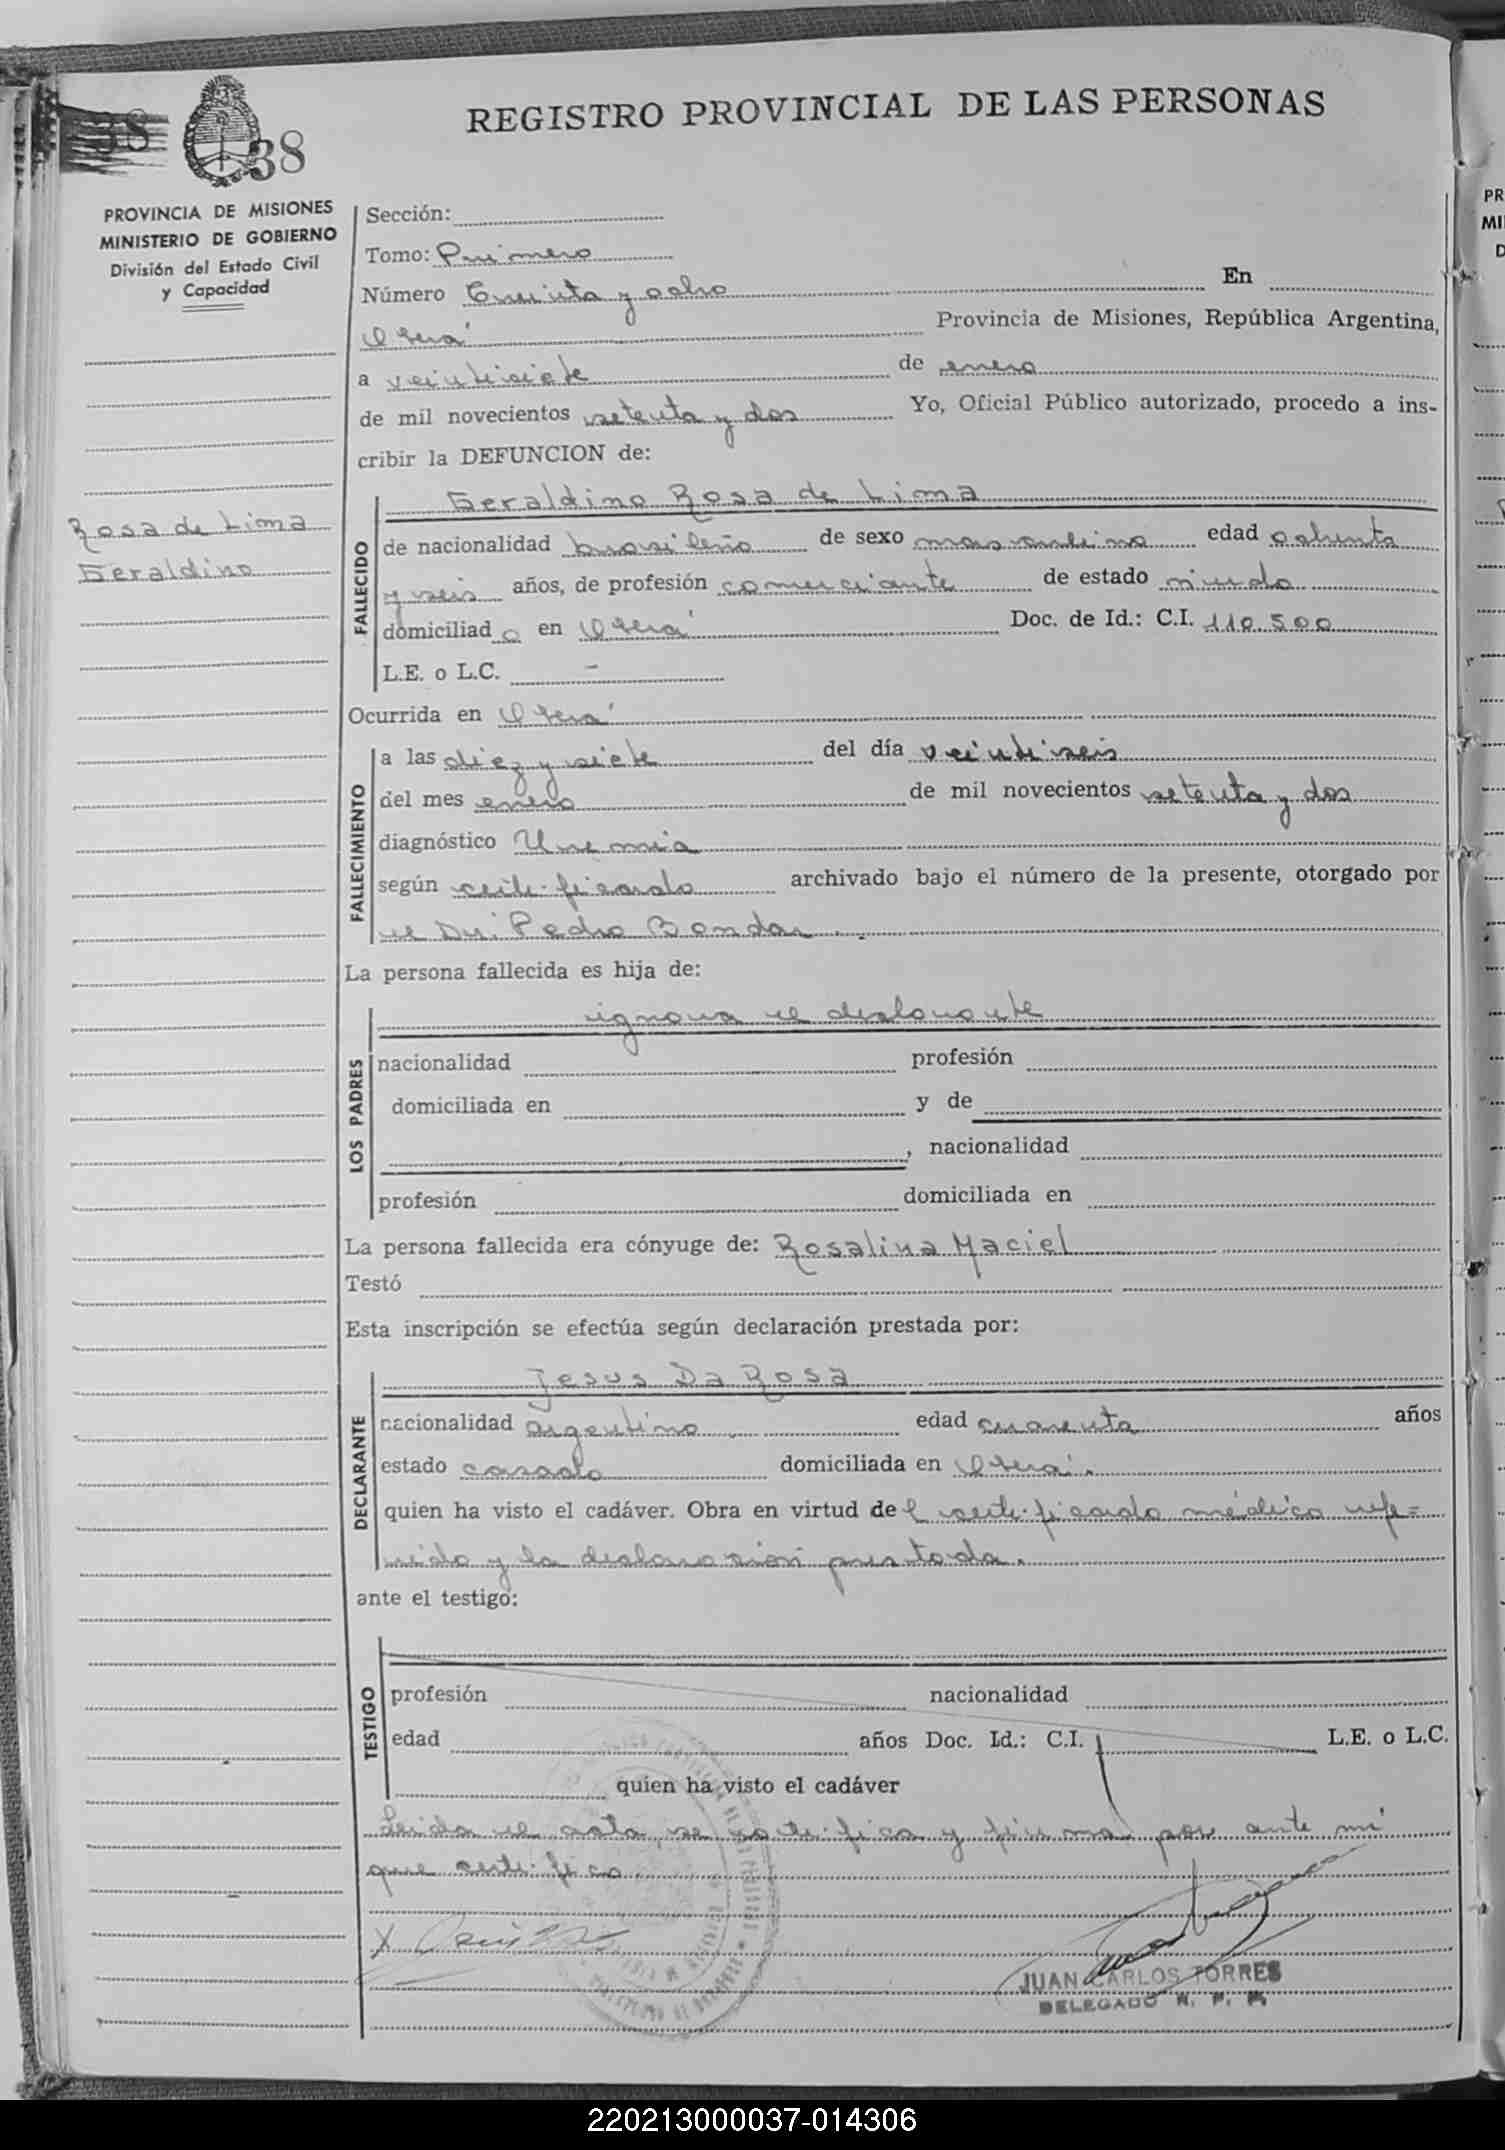 38
38
REGISTRO PROVINCIAL DE LAS PERSONAS
PROVINCIA DE MISIONES
MINISTERIO DE GOBIERNO
División del Estado Civil
y Capacidad
Rosa de Lima
Geraldino
Sección:
Tomo: Primero
Número Treinta y ocho En
Oberá Provincia de Misiones, República Argentina,
a veintisiete de enero
de mil novecientos setenta y dos Yo, Oficial Público autorizado, procedo a ins-
cribir la DEFUNCION de:
FALLECIDO
Geraldino Rosa de Lima
de nacionalidad brasileño de sexo masculino edad ochenta
y seis años, de profesión comerciante de estado viudo
domiciliado en Oberá Doc. de Id.: C.I. 110.500
L.E. o L.C. -
Ocurrida en Oberá
FALLECIMIENTO
a las diez y siete del día veintiseis
del mes enero de mil novecientos setenta y dos
diagnóstico Uremia
según certificado archivado bajo el número de la presente, otorgado por
el Dr. Pedro Bondar.
La persona fallecida es hija de:
LOS PADRES
ignora el declarante
nacionalidad profesión
domiciliada en y de
, nacionalidad
profesión domiciliada en
La persona fallecida era cónyuge de: Rosalina Maciel
Testó
Esta inscripción se efectúa según declaración prestada por:
DECLARANTE
Jesus Da Rosa
nacionalidad argentino edad cuarenta años
estado casado domiciliada en Oberá.
quien ha visto el cadáver. Obra en virtud del certificado médico refe=
rido y la declaracion prestada.
ante el testigo:
TESTIGO
profesión nacionalidad
edad años Doc. Id.: C.I. L.E. o L.C.
quien ha visto el cadáver
Leida el acta, se ratifica y firma por ante mí
que certifico.
X
JUAN CARLOS TORRES
DELEGADO R. P. P.
PR
MI
D
220213000037-014306